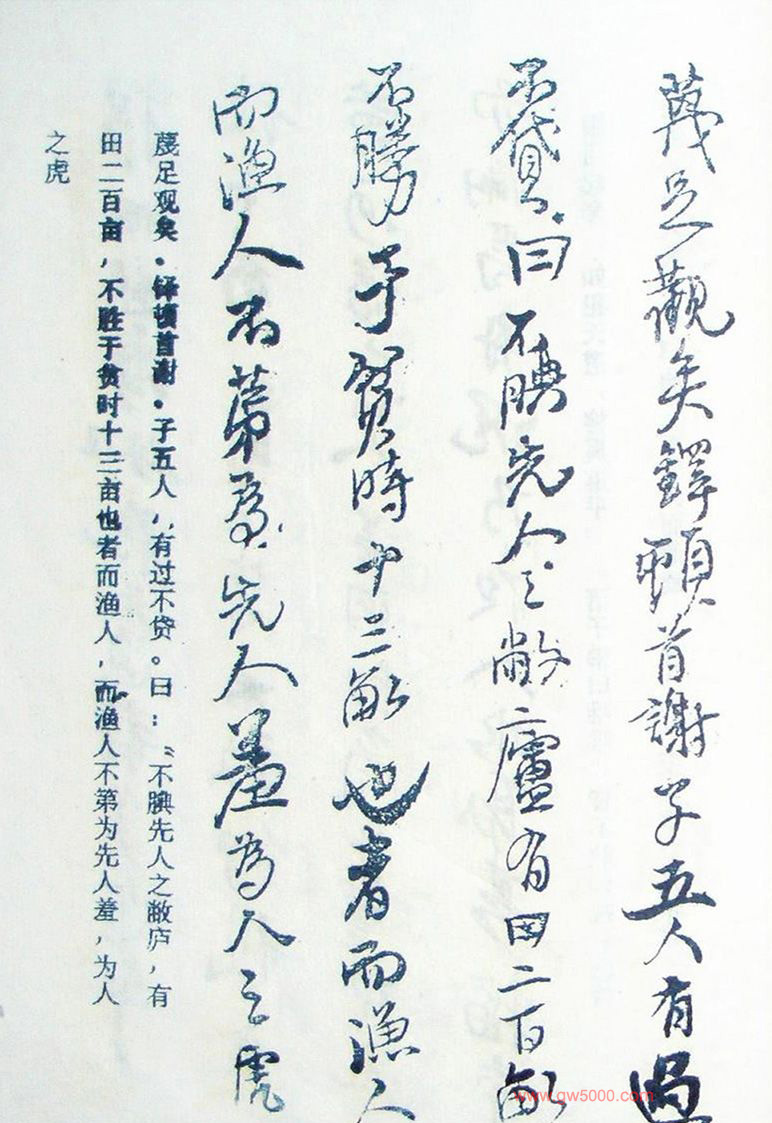 蔑足觀矣鐸頓首謝子五人有過
不貸曰不腆先人之敝廬有田二百畝
不勝于貧時十三畝也者而漁人
而漁人不第為先人羞為人之虎
蔑足观矣。铎顿首谢。子五人,有过不贷。曰:“不腆先人之敝庐,有
田二百亩,不胜于贫时十三亩也者而渔人,而渔人不第为先人羞,为人
之虎
www.gw5000.com